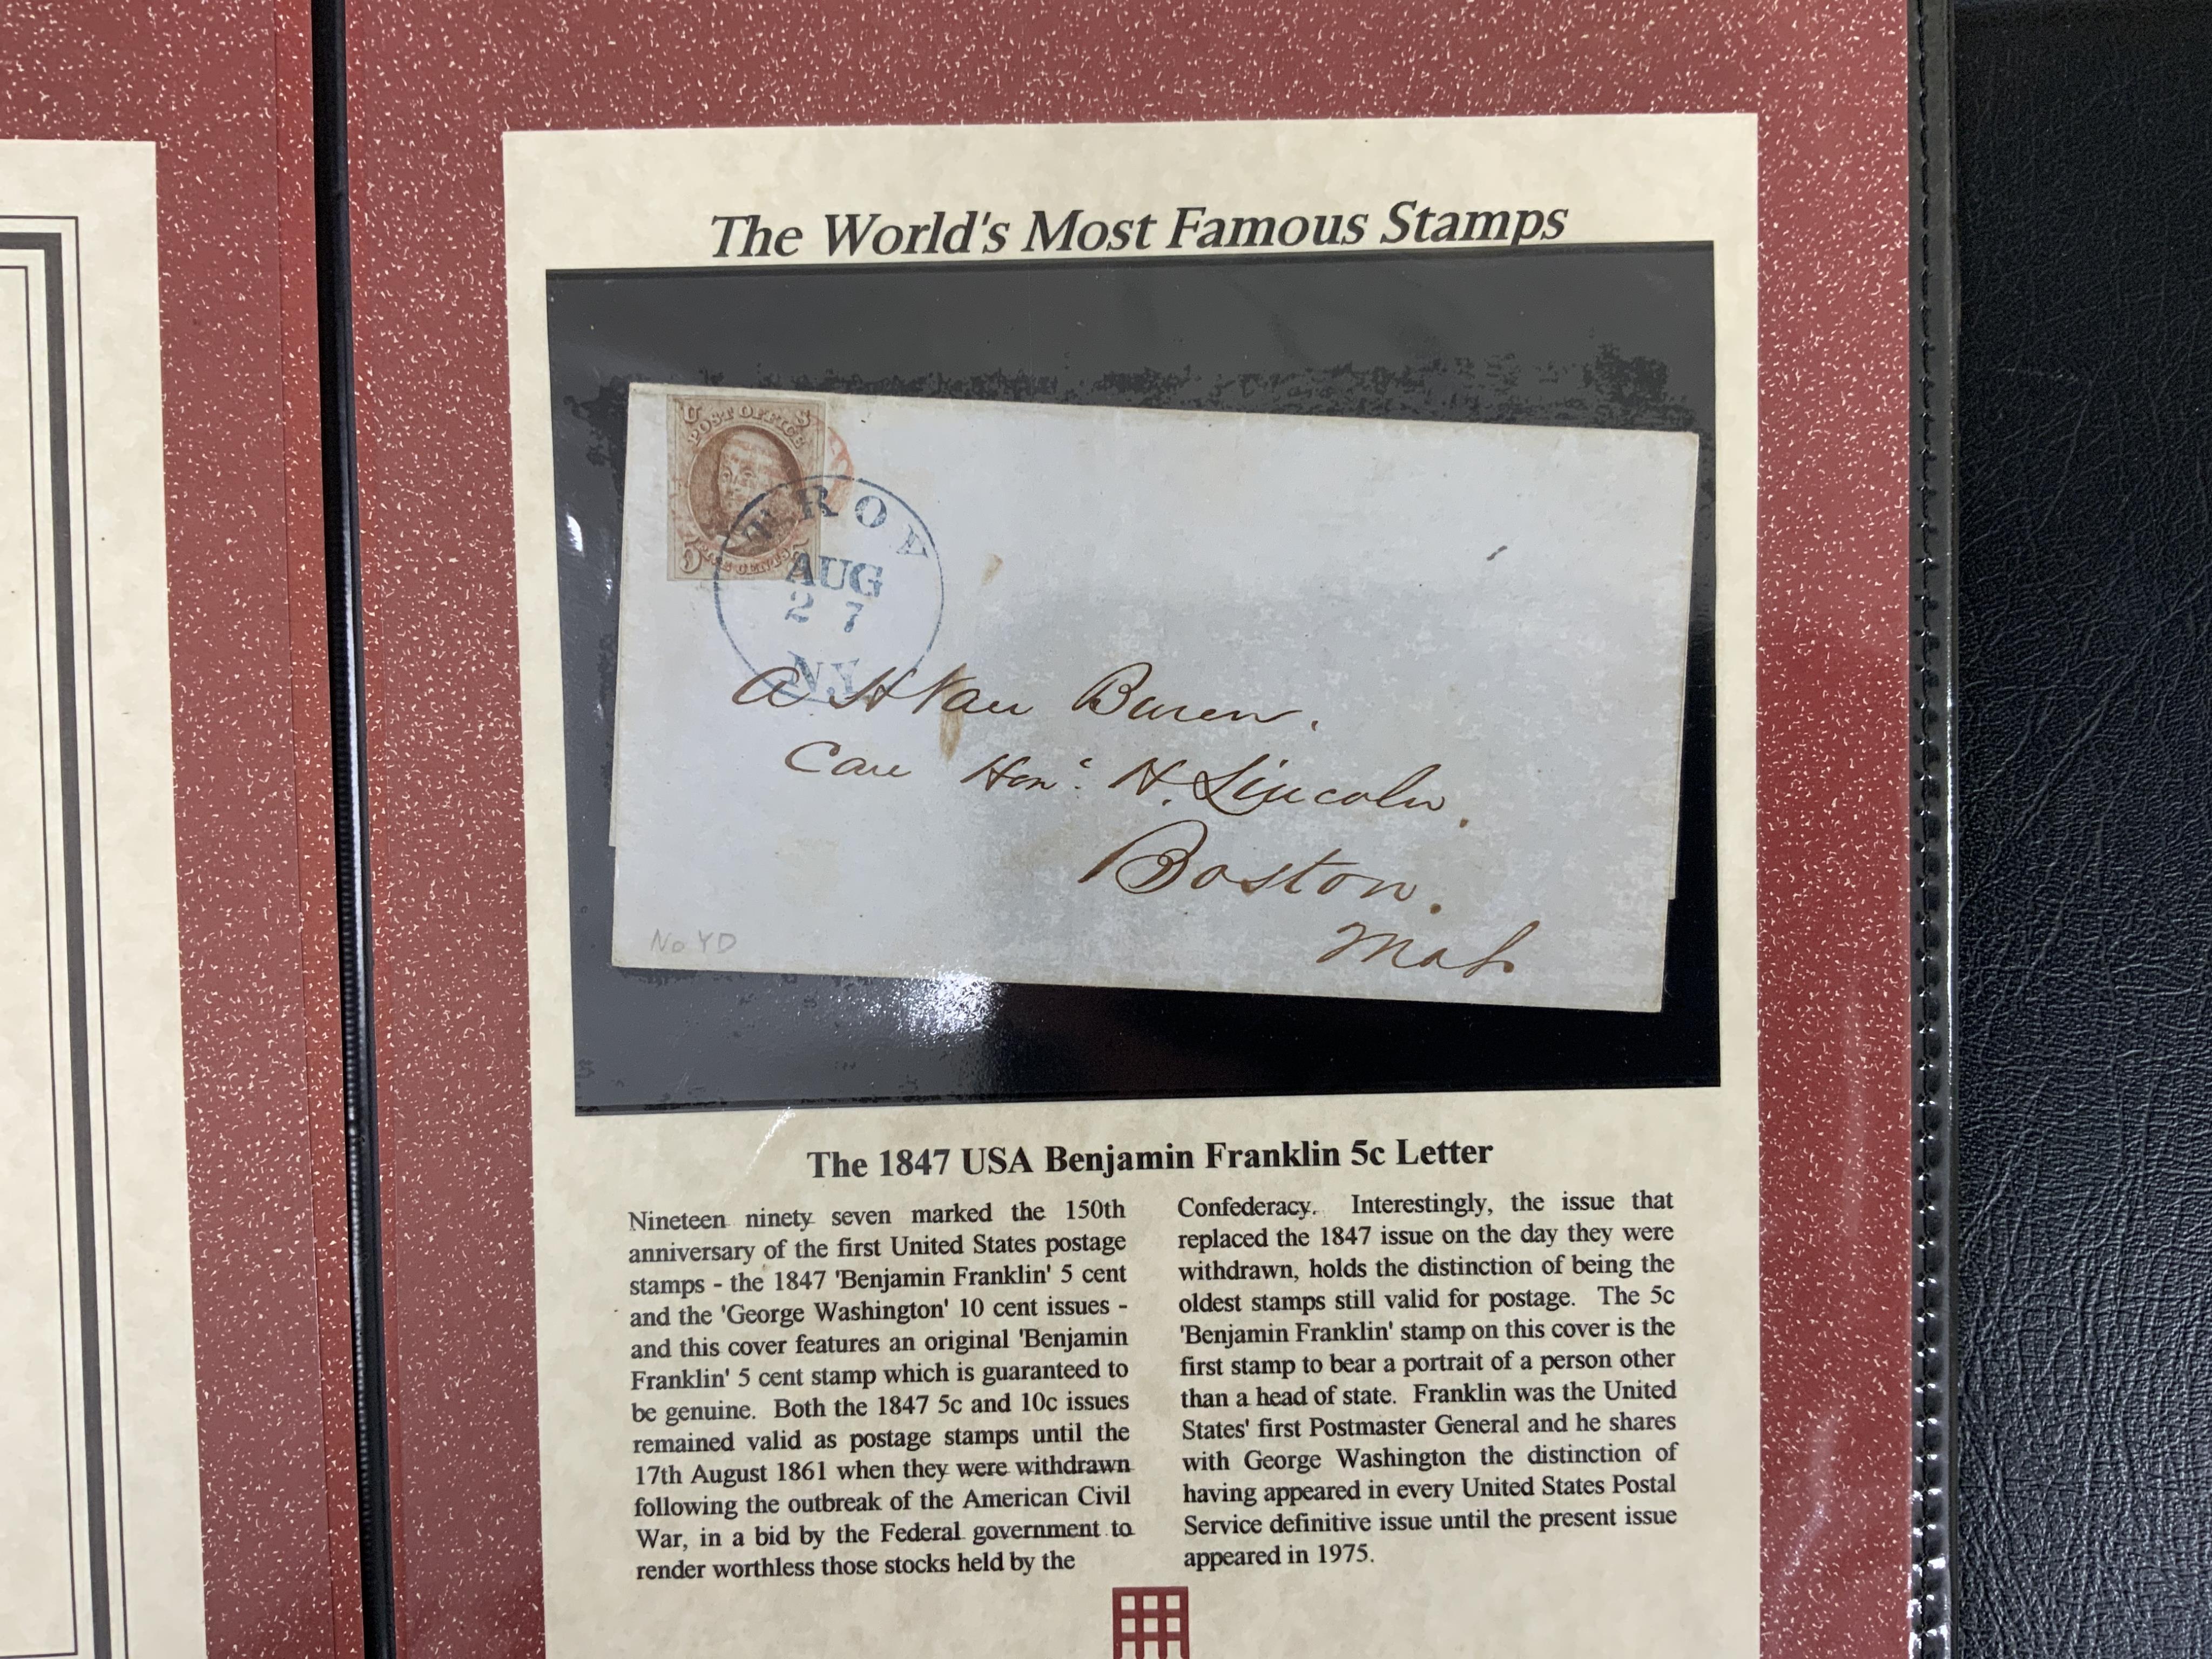 The World's Most Famous Stamps
U S
POST OFFICE
5 FIVE CENTS
TROY
AUG
27
N.Y.
A H Van Buren.
Care Hon. H. Lincoln.
Boston.
Mass
No YD
The 1847 USA Benjamin Franklin 5c Letter
Nineteen ninety seven marked the 150th
anniversary of the first United States postage
stamps - the 1847 'Benjamin Franklin' 5 cent
and the 'George Washington' 10 cent issues -
and this cover features an original 'Benjamin
Franklin' 5 cent stamp which is guaranteed to
be genuine. Both the 1847 5c and 10c issues
remained valid as postage stamps until the
17th August 1861 when they were withdrawn
following the outbreak of the American Civil
War, in a bid by the Federal government to
render worthless those stocks held by the
Confederacy. Interestingly, the issue that
replaced the 1847 issue on the day they were
withdrawn, holds the distinction of being the
oldest stamps still valid for postage. The 5c
'Benjamin Franklin' stamp on this cover is the
first stamp to bear a portrait of a person other
than a head of state. Franklin was the United
States' first Postmaster General and he shares
with George Washington the distinction of
having appeared in every United States Postal
Service definitive issue until the present issue
appeared in 1975.